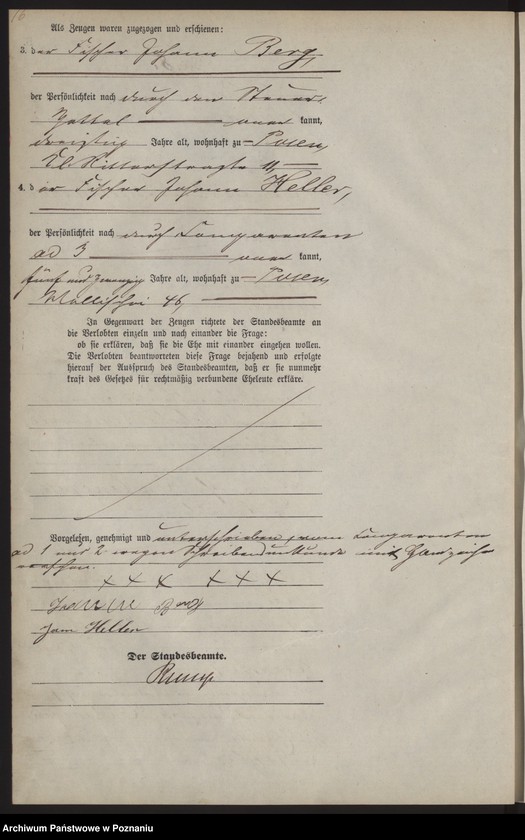 16
Als Zeugen waren zugezogen und erschienen:
3. der Fischer Johann Berg,
der Persönlichkeit nach durch den Steuer-
Zettel — kannt,
dreißig Jahre alt, wohnhaft zu Posen,
Kl. Ritterstraße 11,
4. der Fischer Johann Heller,
der Persönlichkeit nach durch Comparenten
ad 3 — kannt,
fünf und zwanzig Jahre alt, wohnhaft zu Posen,
Wallischei 46,
In Gegenwart der Zeugen richtete der Standesbeamte an
die Verlobten einzeln und nach einander die Frage:
ob sie erklären, daß sie die Ehe mit einander eingehen wollen.
Die Verlobten beantworteten diese Frage bejahend und erfolgte
hierauf der Ausspruch des Standesbeamten, daß er sie nunmehr
kraft des Gesetzes für rechtmäßig verbundene Eheleute erkläre.
Vorgelesen, genehmigt und unterschrieben, vom Comparenten
ad 1 und 2 wegen Schreibensunkunde mit Handzeichen
versehen.
+ + + + + +
Berg
Jan Heller
Der Standesbeamte.
Archiwum Państwowe w Poznaniu